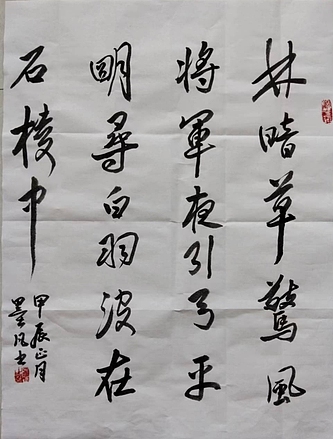 林暗草驚風
將軍夜引弓平
明尋白羽沒在
石棱中
甲辰正月
墨凡书